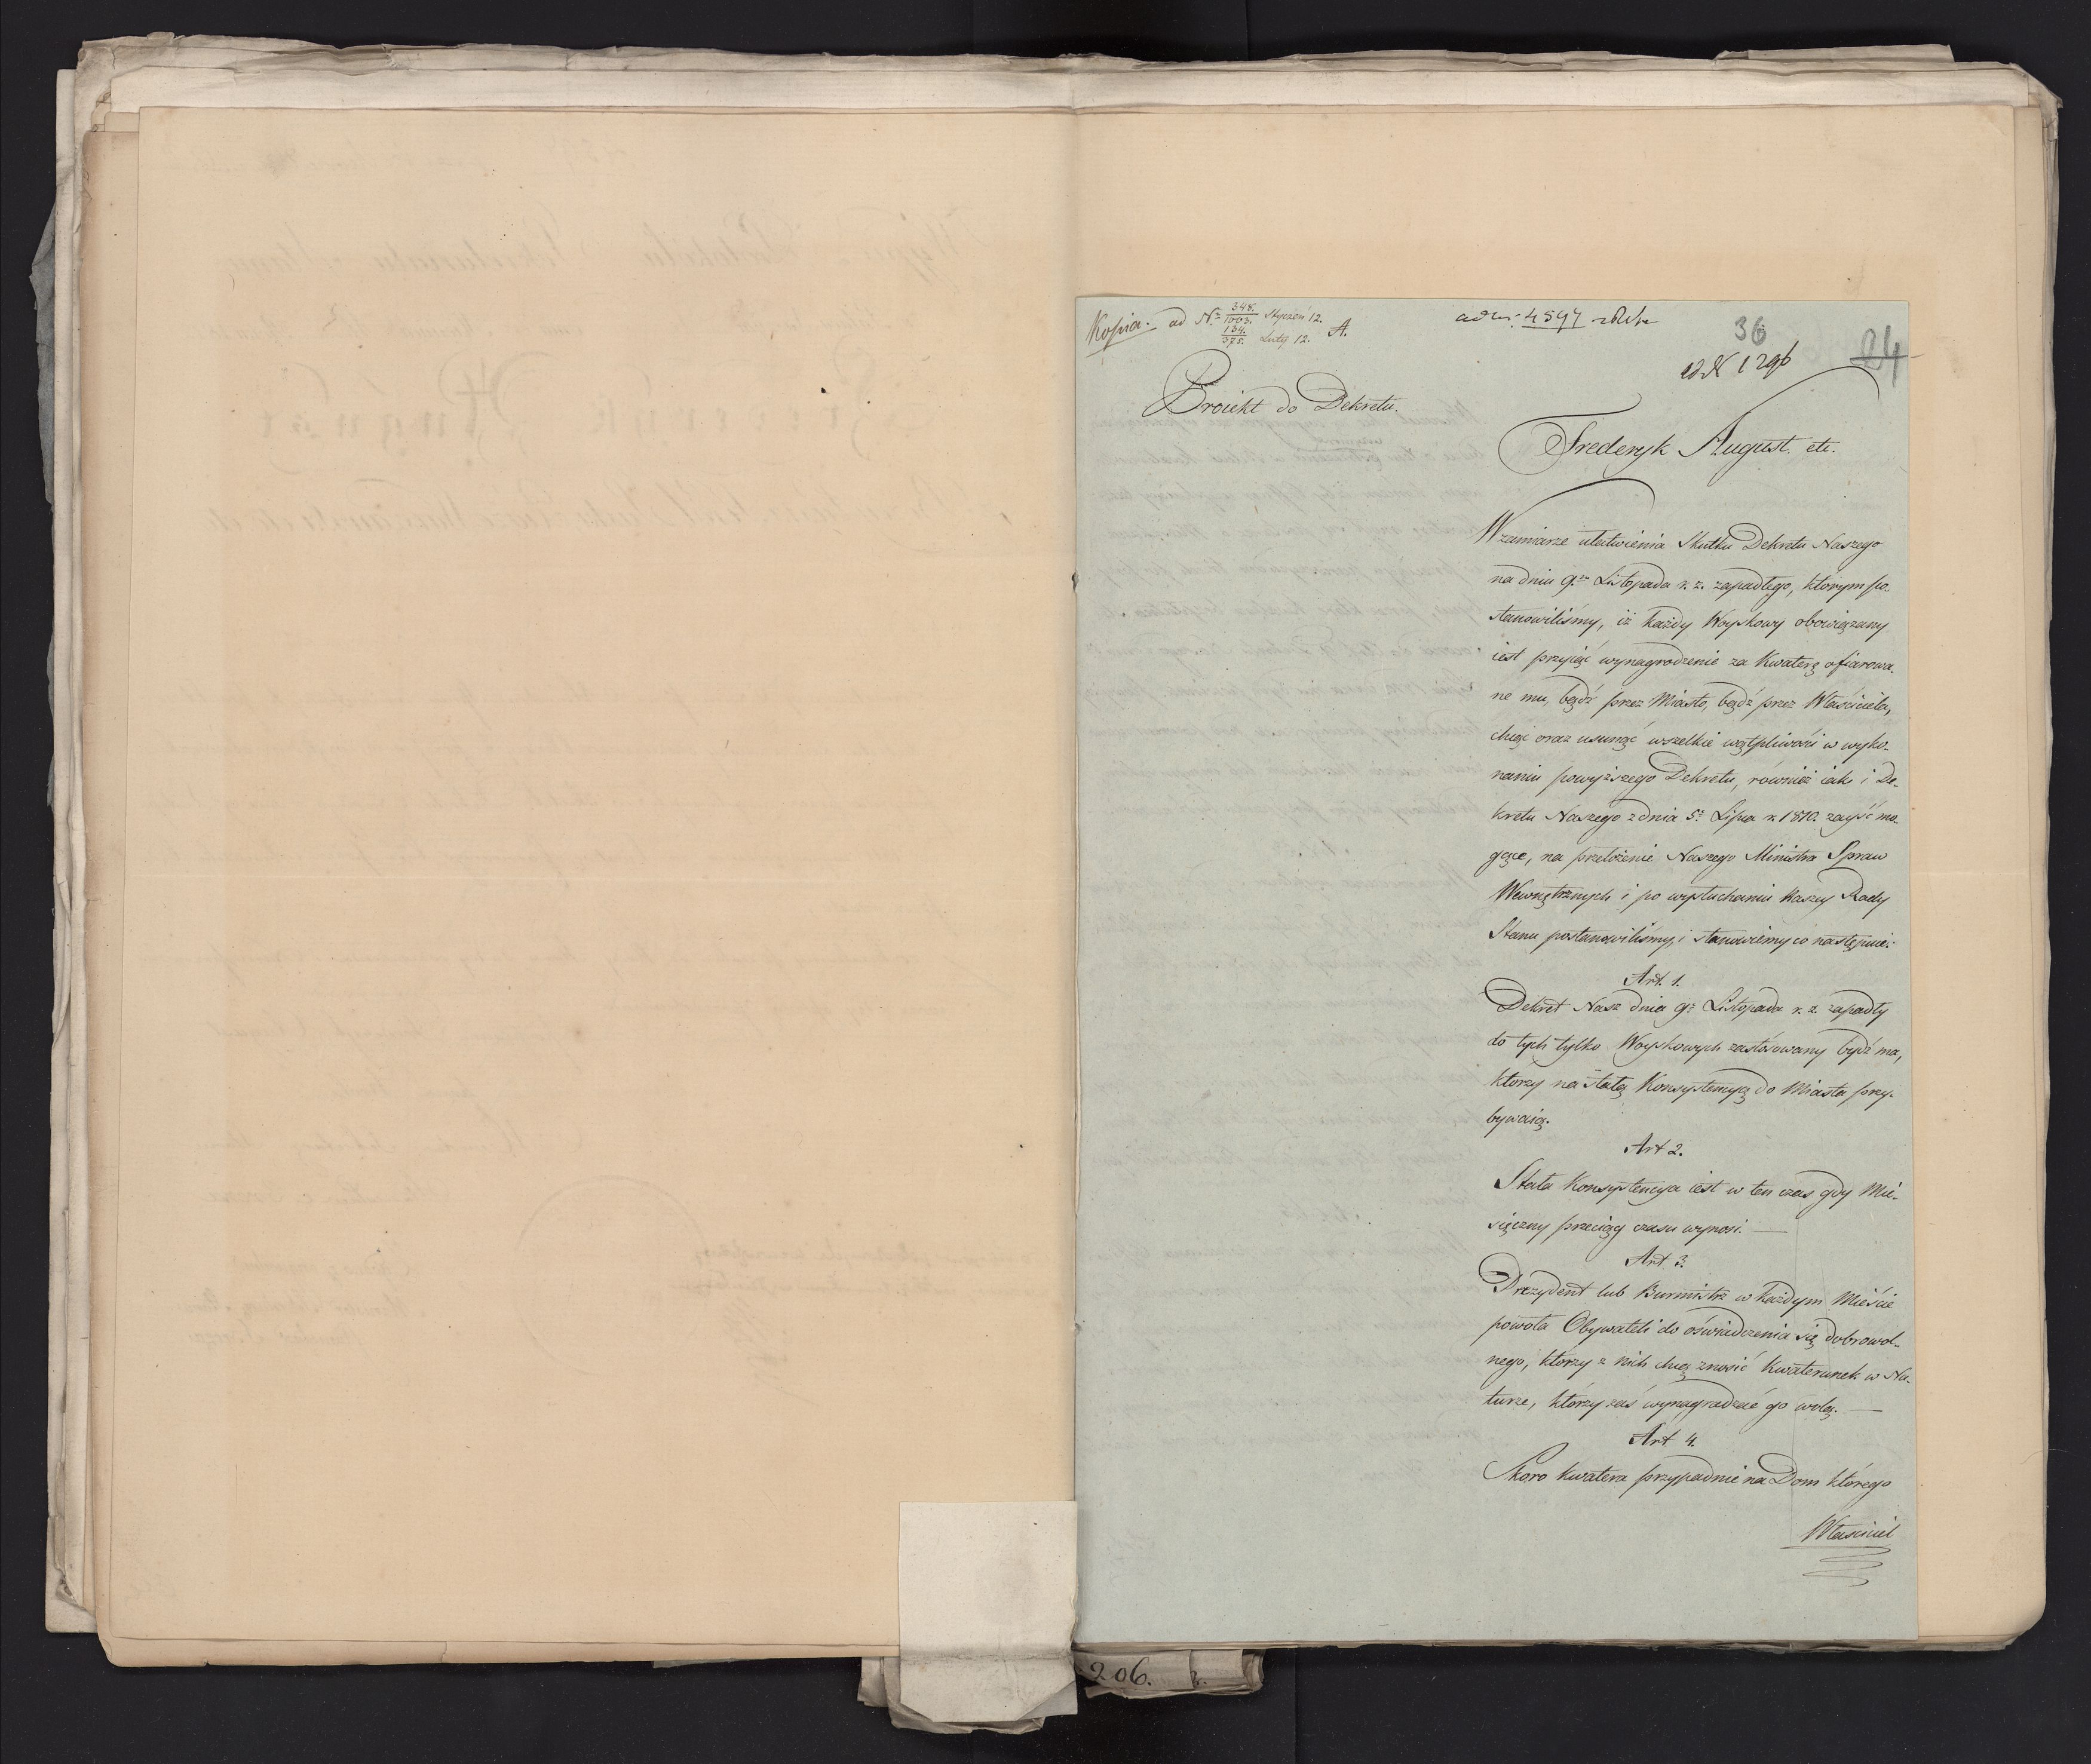 Kopia. ad Nr. 348. / 1003. Styczeń 12.
134. / 375. Luty 12. A.
ad nr: 4597
36
84
ad N 1296
Proiekt do Dekretu.
Frederyk August. etc.
W zamiarze ułatwienia Skutku Dekretu Naszego
na dniu 9go Listopada r. z. zapadłego, którym po-
stanowiliśmy, iż każdy Woyskowy obowiązany
iest przyiąć wynagrodzenie za Kwaterę ofiarowa-
ne mu, bądź przez Miasto, bądź przez Właściciela,
chcąc oraz usunąć wszelkie wątpliwości w wyko-
naniu powyższego Dekretu, również iak i De-
kretu Naszego z dnia 5go Lipca r. 1810. zayść mo-
gące, na przełożenie Naszego Ministra Spraw
Wewnętrznych i po wysłuchaniu Naszey Rady
Stanu postanowiliśmy, i stanowiemy co następuie:
Art. 1.
Dekret Nasz dnia 9go Listopada r. z. zapadły
do tych tylko Woyskowych zastósowany bydź ma,
którzy na stałą Konsystencyą do Miasta przy-
bywaią.
Art 2.
Stała Konsystencya iest w ten czas gdy Mie-
sięczny przeciąg czasu wynosi.
Art. 3.
Prezydent lub Burmistrz w każdym Mieście
powoła Obywateli do oświadczenia się dobrowol-
nego, którzy z nich chcą znosić Kwaterunek w Na-
turze, którzy zaś wynagradzać go wolą.
Art 4.
Skoro kwatera przypadnie na Dom którego
Właściciel
206.